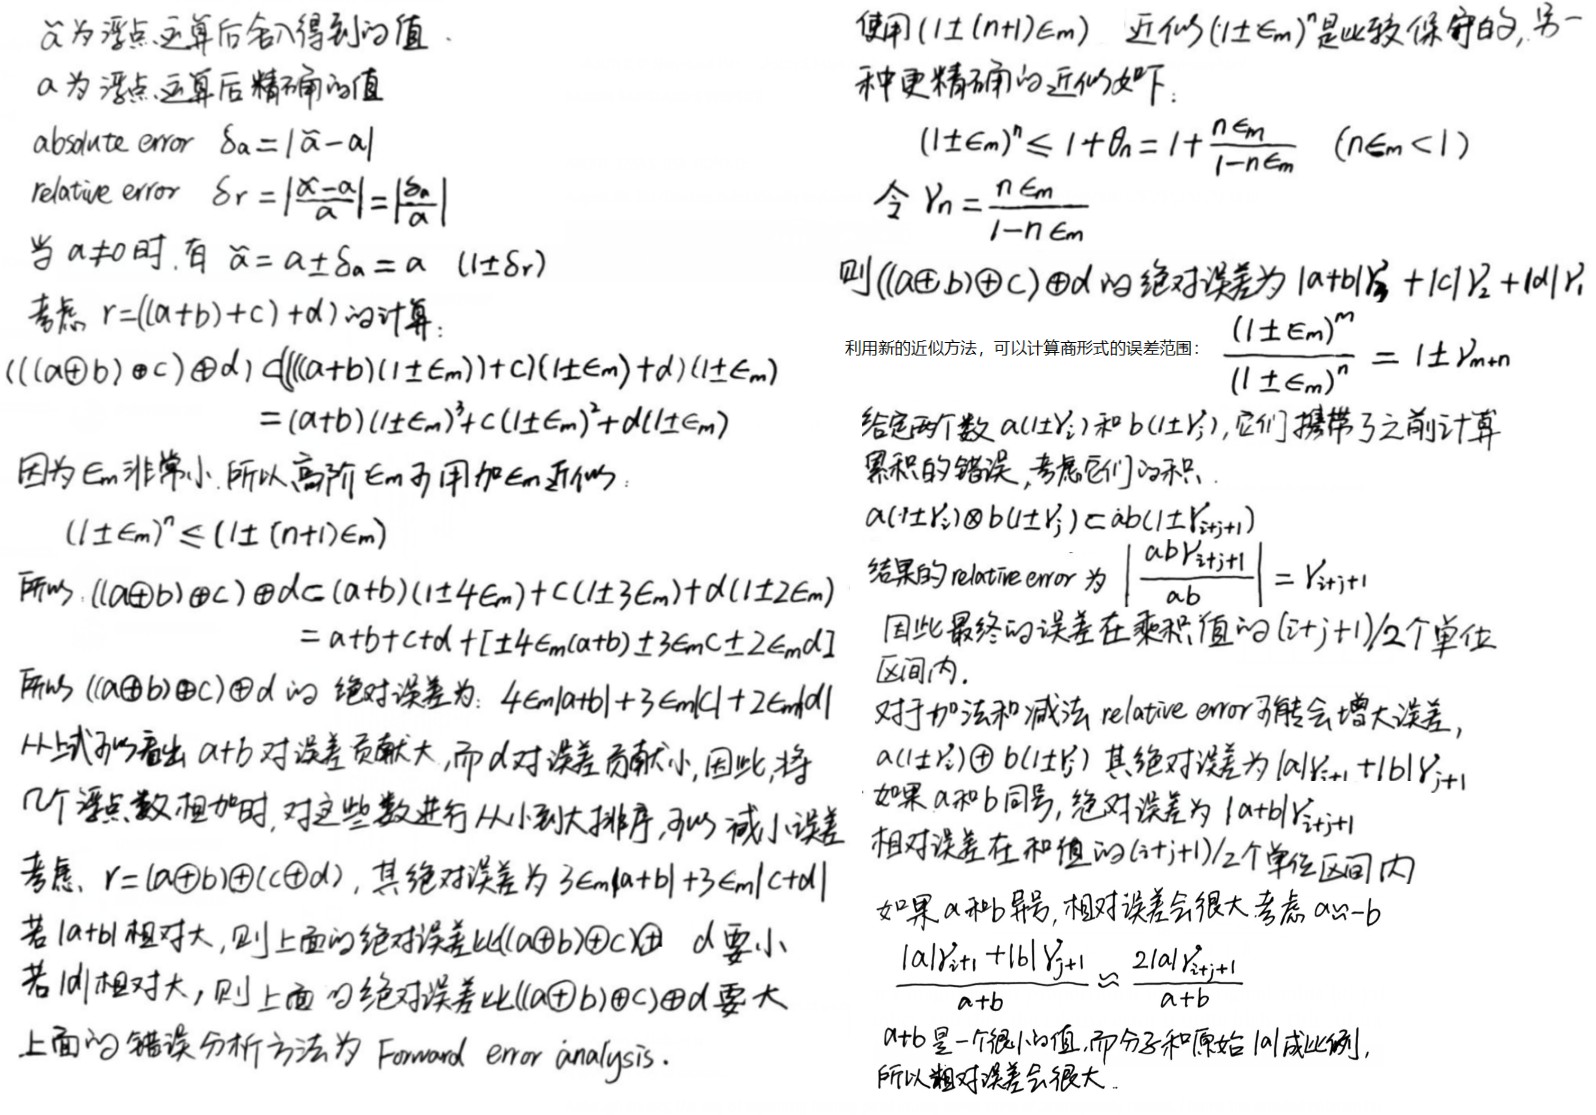 ã为浮点运算后舍入得到的值.
a为浮点运算后精确的值
absolute error δa=|ã-a|
relative error δr=|(ã-a)/a|=|δa/a|
当a≠0时,有 ã=a±δa=a (1±δr)
考虑 r=(((a+b)+c)+d)的计算:
(((a⊕b)⊕c)⊕d)⊂((((a+b)(1±εm))+c)(1±εm)+d)(1±εm)
=(a+b)(1±εm)³+c(1±εm)²+d(1±εm)
因为εm非常小.所以高阶εm可用加εm近似:
(1±εm)ⁿ≤(1±(n+1)εm)
所以,((a⊕b)⊕c)⊕d⊂(a+b)(1±4εm)+c(1±3εm)+d(1±2εm)
=a+b+c+d+[±4εm(a+b)±3εmc±2εmd]
所以((a⊕b)⊕c)⊕d的绝对误差为: 4εm|a+b|+3εm|c|+2εm|d|
从上式可以看出a+b对误差贡献大,而d对误差贡献小,因此,将
几个浮点数相加时,对这些数进行从小到大排序,可以减小误差
考虑, r=(a⊕b)⊕(c⊕d),其绝对误差为3εm|a+b|+3εm|c+d|
若|a+b|相对大,则上面的绝对误差比((a⊕b)⊕c)⊕ d要小
若|d|相对大,则上面的绝对误差比((a⊕b)⊕c)⊕d要大
上面的错误分析方法为 Forward error analysis.
使用(1±(n+1)εm) 近似(1±εm)ⁿ是比较保守的,另一
种更精确的近似如下:
(1±εm)ⁿ≤1+θn=1+nεm/(1-nεm) (nεm<1)
令 γn=nεm/(1-nεm)
则((a⊕b)⊕c)⊕d的绝对误差为|a+b|γ3+|c|γ2+|d|γ1
利用新的近似方法，可以计算商形式的误差范围： (1±εm)^m/(1±εm)^n=1±γm+n
给定两个数a(1±γi)和b(1±γj),它们携带了之前计算
累积的错误,考虑它们的积.
a(1±γi)⊗b(1±γj)⊂ab(1±γi+j+1)
结果的relative error为 |abγi+j+1/ab|=γi+j+1
因此最终的误差在乘积值的(i+j+1)/2个单位
区间内.
对于加法和减法relative error可能会增大误差,
a(1±γi)⊕b(1±γj) 其绝对误差为|a|γi+1+|b|γj+1
如果a和b同号,绝对误差为|a+b|γi+j+1
相对误差在和值的(i+j+1)/2个单位区间内
如果a和b异号,相对误差会很大.考虑a≈-b
(|a|γi+1+|b|γj+1)/(a+b)≈2|a|γi+j+1/(a+b)
a+b是一个很小的值,而分子和原始|a|成比例,
所以相对误差会很大.